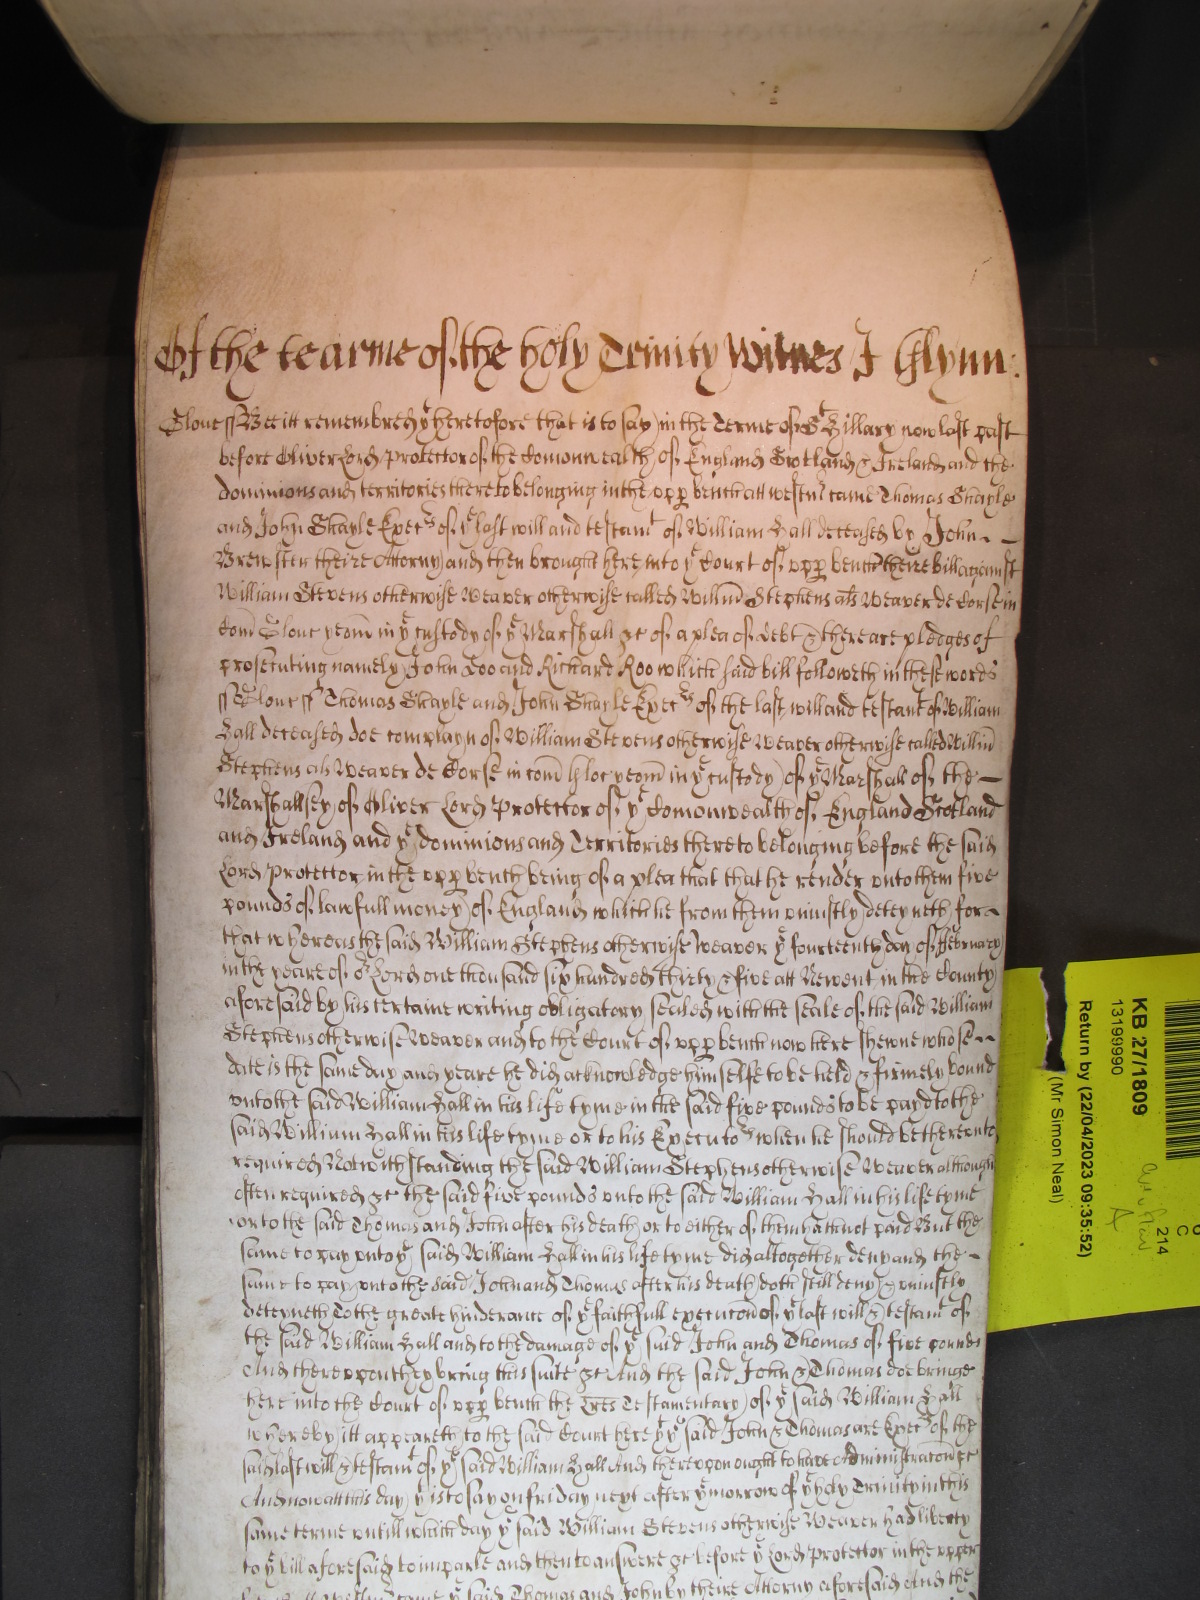 Of the tearme of the holy Trinity Witnes J Glynn:
Glouc ss Bee itt remembred yt heretofore that is to say in the Terme of St Hillary now last past
before Oliver Lord Protector of the Comonwealth of England Scotland & Ireland and the
dominions and territories thereto belonging in the upp bench att westm came Thomas Skayle
and John Skayle Execrs of ye last will and testamt of William Hall deceased by John
Brewster theire Attorny and then brought here into ye Court of upp bench theire bill against
William Stevens otherwise Weaver otherwise called Willm Stephens als Weaver de Corse in
Com Glouc yeom in ye custody of ye Marshall &c of a plea of debt & there are pledges of
prosecuting namely John Doo and Richard Roo which said bill followeth in these words
ss Glouc ss Thomas Skayle and John Skayle Execrs of the last will and testamt of William
Hall deceased doe complayn of William Stevens otherwise Weaver otherwise called Willm
Stephens als Weaver de Corse in com Gloc yeom in ye custody of ye Marshall of the
Marshallsey of Oliver Lord Protector of ye Comonwealth of England Scotland
and Ireland and ye dominions and Territories thereto belonging before the said
Lord Protector in the upp bench being of a plea that that he render unto them five
pounds of lawfull money of England which he from them uniustly deteyneth for
that whereas the said William Stephens otherwise Weaver ye fourteenth day of February
in the yeare of or Lord one thousand six hundred thirty & five att Newent in the County
aforesaid by his certaine writing obligatory sealed with the seale of the said William
Stephens otherwise Weaver and to the Court of upp bench now here shewne whose
date is the same day and yeare he did acknowledge himselfe to be held & firmely bound
unto the said William Hall in his life tyme in the said five pounds to be payd to the
said William Hall in his life tyme or to his Executors when he should be thereunto
required Notwithstanding the said William Stephens otherwise Weaver although
often required &c the said five pounds unto the said William Hall in his life tyme
or to the said Thomas and John after his death or to either of them hath not paid But the
same to pay unto ye said William Hall in his life tyme did altogether deny and the
same to pay unto the said John and Thomas after his death doth still deny & uniustly
deteyneth To the great hinderance of ye faithfull execucon of ye last will & testamt of
the said William Hall and to the damage of ye said John and Thomas of five pounds
And thereupon they bring this suite &c And the said John & Thomas doe bringe
here into the Court of upp bench the Lres Testamentary of ye said William Hall
whereby itt appeareth to the said Court here yt ye said John & Thomas are Execrs of the
said last will & testamt of ye said William Hall And thereupon ought to have Administracon &c
And now att this day yt is to say on friday next after ye morrow of ye holy Trinity in this
same terme untill which day ye said William Stevens otherwise Weaver had liberty
to ye bill aforesaid to imparle and then to answere &c before ye Lord Protector in the upper
came ye said Thomas and John by theire Attorny aforesaid And the
KB 27/1809
13199990
Return by (22/04/2023 09:35:52)
(Mr Simon Neal)
214
A
C